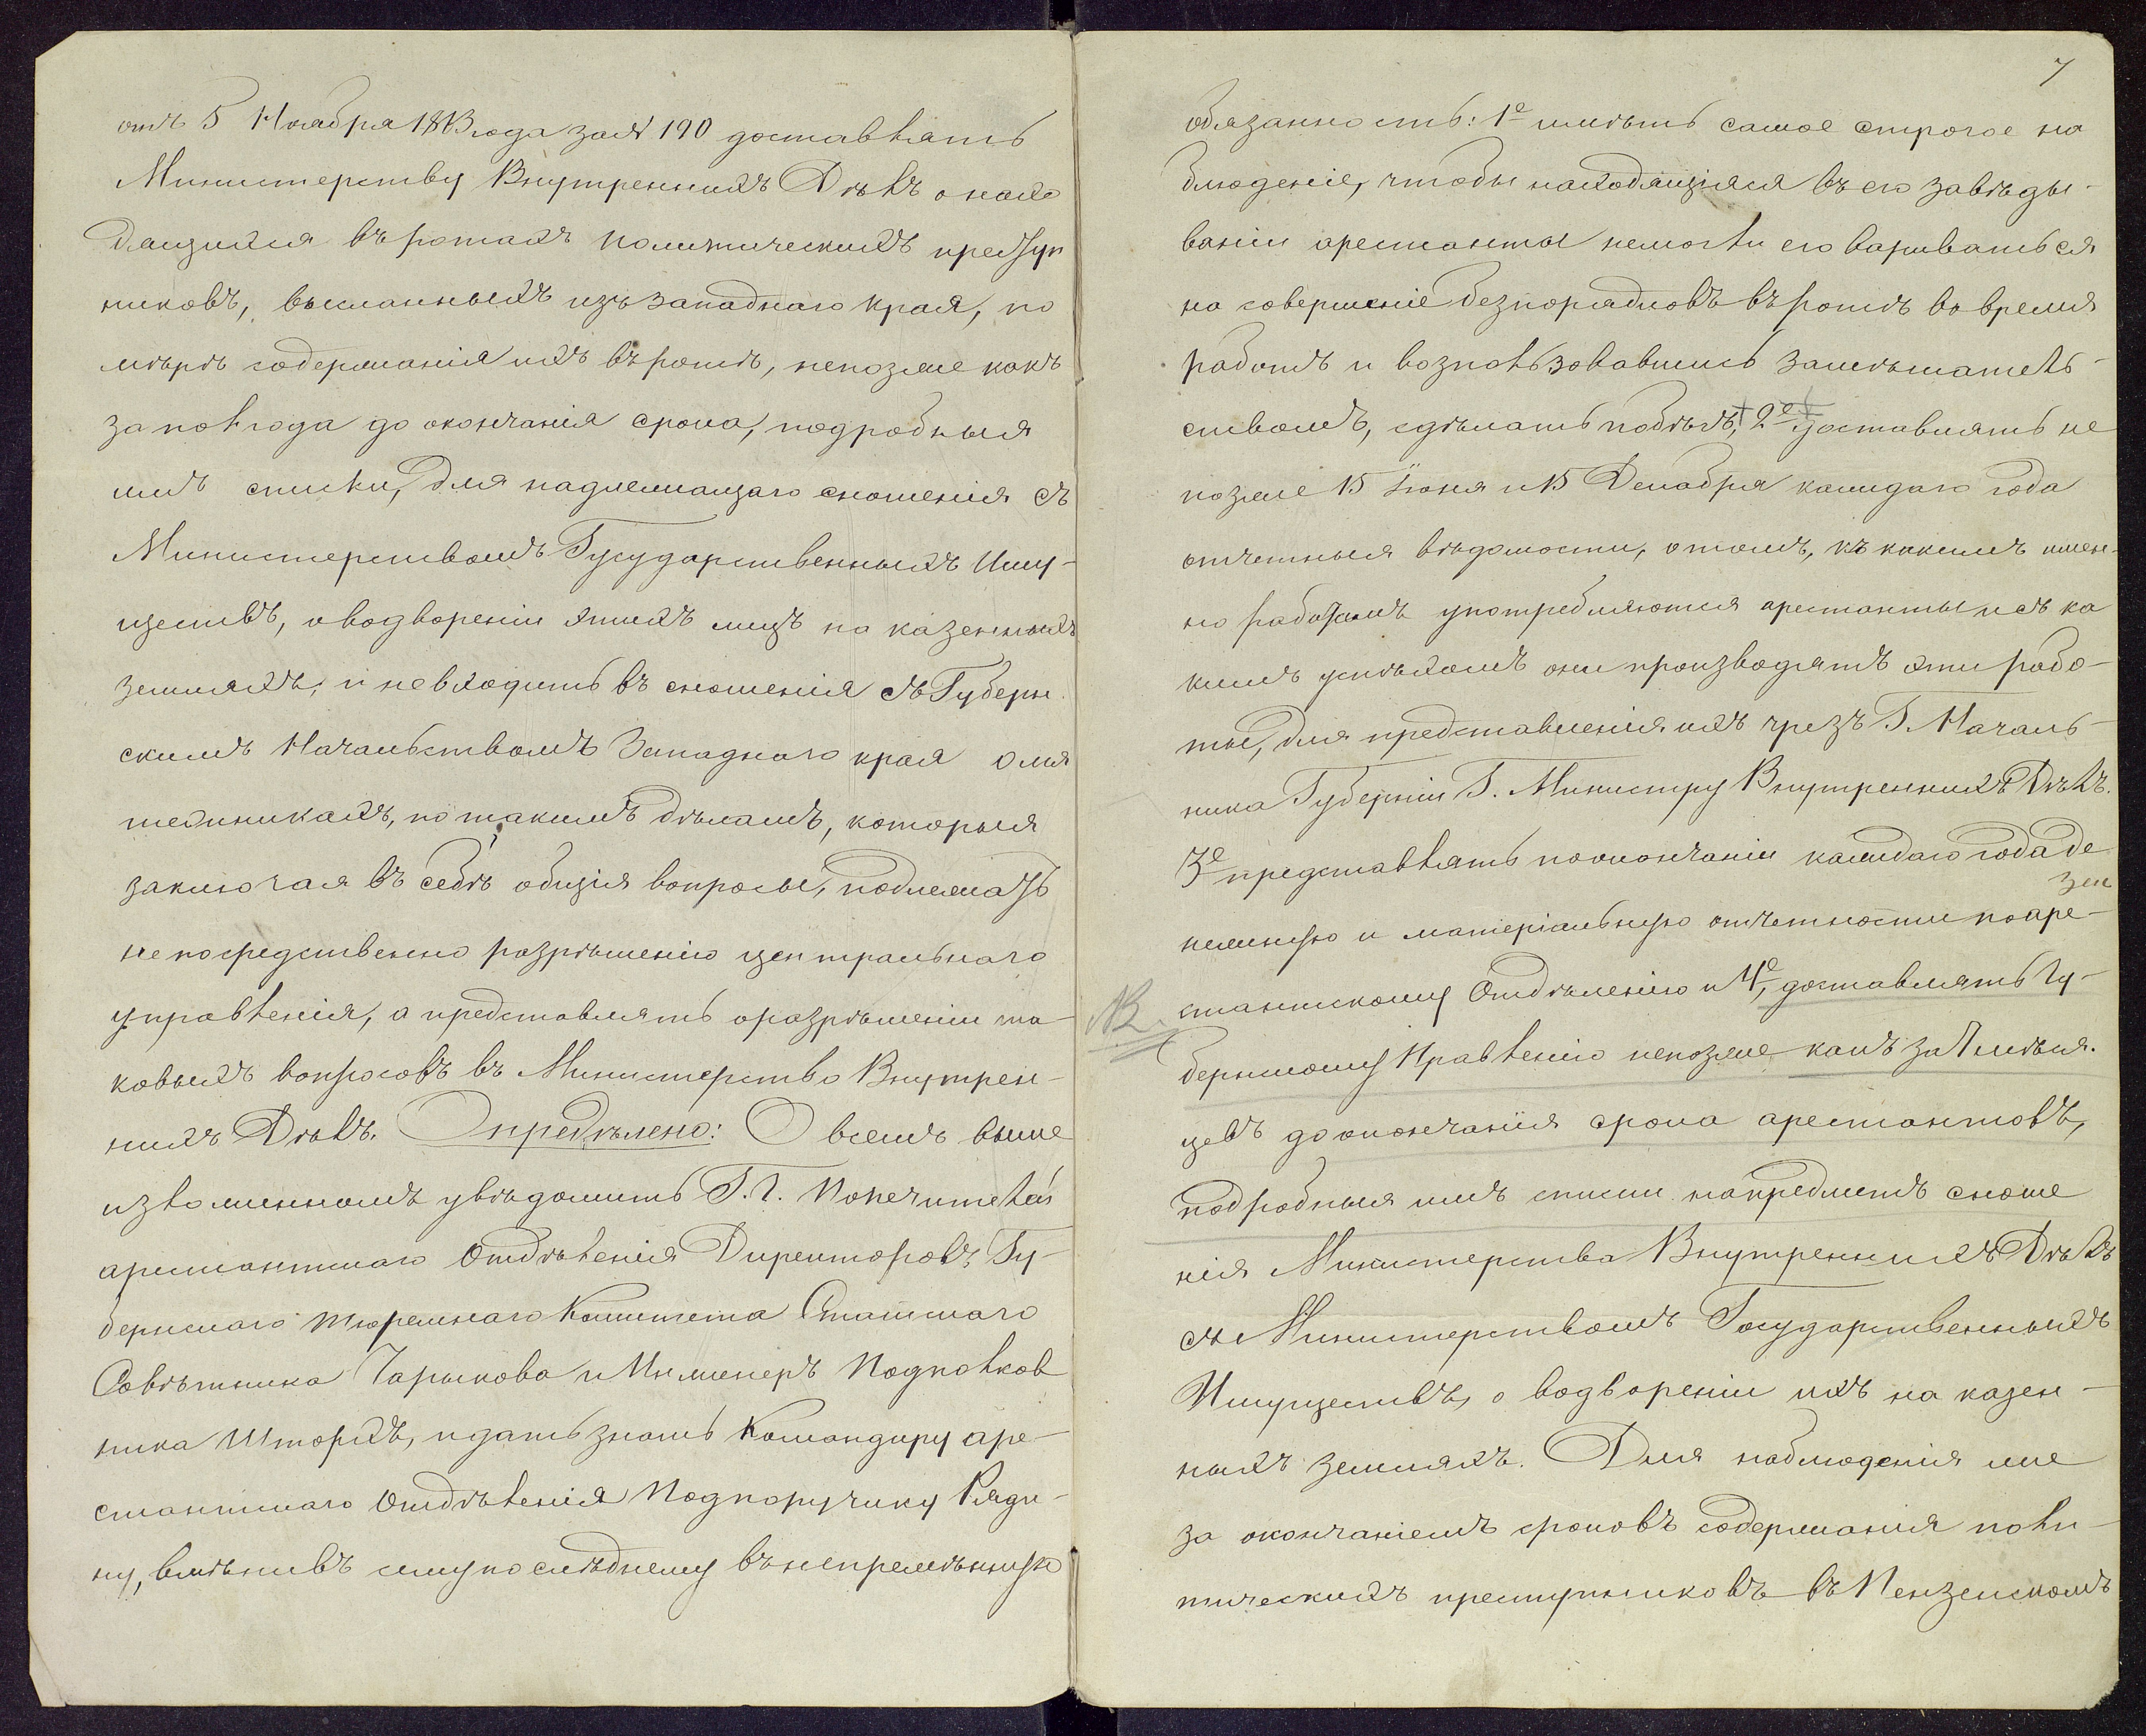 отъ 5 Ноября 18 года за № 190 доставлять
Министерству Внутреннихъ Дѣлъ о нахо
дящихся въ ротахъ политическихъ преступ
никовъ, высланныхъ изъ западнаго края, по
мѣрѣ содержанія ихъ въ ротѣ, непозже какъ
за полгода до окончанія срока, подробныя
имъ списки, для надлежащаго сношенія съ
Министерствомъ Гусударственныхъ Иму-
ществъ, о водвореніи этихъ лицъ на казенныхъ
земляхъ, и не входить въ сношенія съ Губерн
скимъ Начальствомъ Западнаго края о мя
тежникахъ, по такимъ дѣламъ, которыя
заключая въ себѣ общія вопросы, подлежатъ
непосредственно разрѣшенію центральнаго
управленія, а представлять о разрѣшеніи та-
ковыхъ вопросовъ въ Министерство Внутрен-
нихъ Дѣлъ. Опредѣлено: О всемъ выше
изложенномъ увѣдомить Г.Г. Попечителей
арестантскаго Отдѣленія Директоровъ Гу-
бернскаго тюремнаго Комитета Статскаго
Совѣтника Чарыкова и Инженеръ Подполков
ника Шторхъ, и дать знать Командиру аре-
стантскаго Отдѣленія Подпоручику Ряди-
ну, вмѣнивъ ему последнему въ непремѣнную
7
обязанность: 1е имѣть самое строгое на
блюденіе, чтобы находящіяся въ его завѣды-
ваніи арестанты немогли сговариваться
на совершеніе безпорядковъ въ ротѣ во время
работъ и воспользовавшись замѣшатель-
ствомъ, сдѣлать побѣгъ, 2е доставлять не
позже 15 Іюня и 15 Декабря каждаго года
отчетныя вѣдомости, о томъ, къ какимъ имен-
но работамъ употребляются арестанты и съ ка
кимъ успѣхомъ они производятъ эти рабо-
ты, для представленія ихъ чрезъ Г. Началь-
ника Губерніи Г. Министру Внутреннихъ Дѣлъ.
3е представлять по окончаніи каждаго года де
нежную и матеріальную отчетности по аре-
стантскому Отдѣленію и 4е, доставлять Гу-
NB
бернскому Правленію непозже какъ за 7 мѣся-
цевъ до окончанія срока арестантовъ,
подробныя имъ списки на предметъ сноше
нія Министерства Внутреннихъ Дѣлъ
съ Министерствомъ Государственныхъ
Имуществъ, о водвореніи ихъ на казен-
ныхъ земляхъ. Для наблюденія же
за окончаніемъ сроковъ содержанія поли-
тическихъ преступниковъ въ Пензенскомъ